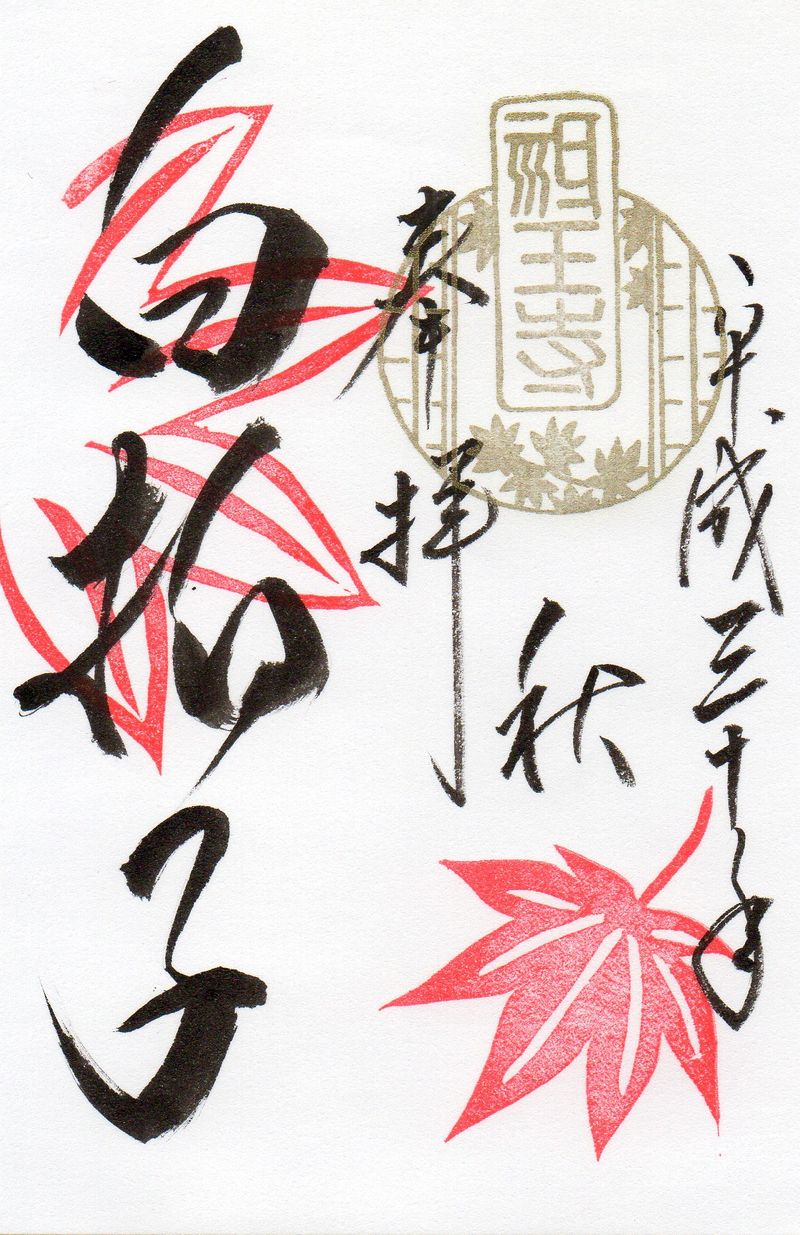 平成三十年
秋
祇王寺
奉拝
白拍子